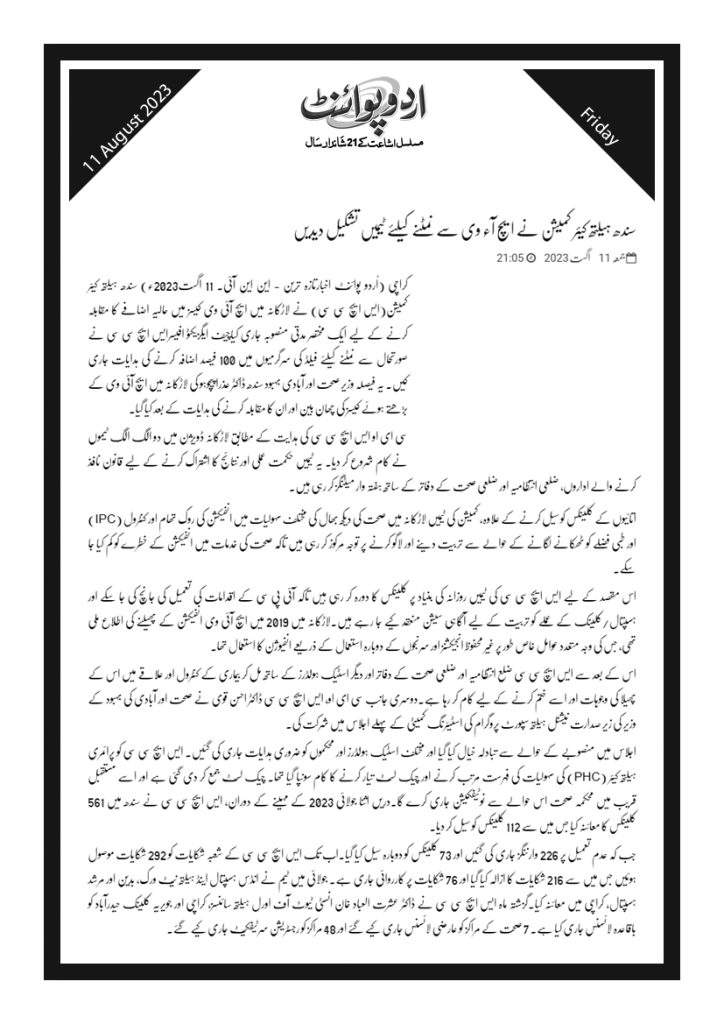 11 August 2023
اردو پوائنٹ
مسلسل اشاعت کے 21 شاندار سال
Friday
سندھ ہیلتھ کیئر کمیشن نے ایچ آء وی سے نمٹنے کیلئے ٹیمیں تشکیل دیدیں
جمعہ 11 اگست 2023 21:05
کراچی (اُردو پوائنٹ اخبارتازہ ترین - این این آئی۔ 11 اگست2023ء) سندھ ہیلتھ کیئر
کمیشن(ایس ایچ سی سی) نے لاڑکانہ میں ایچ آئی وی کیسز میں حالیہ اضافے کا مقابلہ
کرنے کے لیے ایک مختصر مدتی منصوبہ جاری کیاچیف ایگزیکٹو افیسرایس ایچ سی سی نے
صورتحال سے نمٹنے کیلئے فیلڈ کی سرگرمیوں میں 100 فیصد اضافہ کرنے کی ہدایات جاری
کیں۔ یہ فیصلہ وزیر صحت اور آبادی بہبود سندھ ڈاکٹر عذراپیچوہوکی لاڑکانہ میں ایچ آئی وی کے
بڑھتے ہوئے کیسز کی چھان بین اور ان کا مقابلہ کرنے کی ہدایات کے بعد کیا گیا۔
سی ای او ایس ایچ سی سی کی ہدایت کے مطابق لاڑکانہ ڈویژن میں دو الگ الگ ٹیموں
نے کام شروع کر دیا۔ یہ ٹیمیں حکمت عملی اور نتائج کا اشتراک کرنے کے لیے قانون نافذ
کرنے والے اداروں، ضلعی انتظامیہ اور ضلعی صحت کے دفاتر کے ساتھ ہفتہ وار میٹنگز کر رہی ہیں۔
اتائیوں کے کلینکس کو سیل کرنے کے علاوہ، کمیشن کی ٹیمیں لاڑکانہ میں صحت کی دیکھ بھال کی مختلف سہولیات میں انفیکشن کی روک تھام اور کنٹرول (IPC)
اور طبی فضلے کو ٹھکانے لگانے کے حوالے سے تربیت دینے اور لاگو کرنے پر توجہ مرکوز کر رہی ہیں تاکہ صحت کی خدمات میں انفیکشن کے خطرے کو کم کیا جا
سکے۔
اس مقصد کے لیے ایس ایچ سی سی کی ٹیمیں روزانہ کی بنیاد پر کلینکس کا دورہ کر رہی ہیں تاکہ آئی پی سی کے اقدامات کی تعمیل کی جانچ کی جا سکے اور
ہسپتال/کلینک کے عملے کو تربیت کے لیے آگاہی سیشن منعقد کیے جا رہے ہیں۔لاڑکانہ میں 2019 میں ایچ آئی وی انفیکشن کے پھیلنے کی اطلاع ملی
تھی، جس کی وجہ متعدد عوامل خاص طور پر غیر محفوظ انجیکشنز اور سرنجوں کے دوبارہ استعمال کے ذریعے انفیوژن کا استعمال تھا۔
اس کے بعد سے ایس ایچ سی سی ضلع انتظامیہ اور ضلعی صحت کے دفاتر اور دیگر اسٹیک ہولڈرز کے ساتھ مل کر بیماری کے کنٹرول اور علاقے میں اس کے
پھیلا کی وجوہات اور اسے ختم کرنے کے لیے کام کر رہا ہے۔دوسری جانب سی ای او، ایس ایچ سی سی ڈاکٹر احسن قوی نے صحت اور آبادی کی بہبود کے
وزیر کی زیر صدارت نیشنل ہیلتھ سپورٹ پروگرام کی اسٹیئرنگ کمیٹی کے پہلے اجلاس میں شرکت کی۔
اجلاس میں منصوبے کے حوالے سے تبادلہ خیال کیا گیا اور مختلف اسٹیک ہولڈرز اور محکموں کو ضروری ہدایات جاری کی گئیں۔ ایس ایچ سی سی کو پرائمری
ہیلتھ کیئر (PHC) کی سہولیات کی فہرست مرتب کرنے اور چیک لسٹ تیار کرنے کا کام سونپا گیا تھا۔ چیک لسٹ جمع کر دی گئی ہے اور اسے مستقبل
قریب میں محکمہ صحت اس حوالے سے نوٹیفکیشن جاری کرے گا۔دریں اثنا جولائی 2023 کے مہینے کے دوران، ایس ایچ سی سی نے سندھ میں 561
کلینکس کا معائنہ کیا جس میں سے 112 کلینکس کو سیل کر دیا۔
جب کہ عدم تعمیل پر 226 وارننگز جاری کی گئیں اور 73 کلینکس کو دوبارہ سیل کیا گیا۔اب تک ایس ایچ سی سی کے شعبہ شکایات کو 292 شکایات موصول
ہوئیں جس میں سے 216 شکایات کا ازالہ کیا گیا اور 76 شکایات پر کارروائی جاری ہے۔ جولائی میں ٹیم نے انڈس ہسپتال اینڈ ہیلتھ نیٹ ورک، بدین اور مرشد
ہسپتال، کراچی میں معائنہ کیا۔گزشتہ ماہ ایس ایچ سی سی نے ڈاکٹر عشرت العباد خان انسٹی ٹیوٹ آف اورل ہیلتھ سائنسز، کراچی اور جویریہ کلینک حیدرآباد کو
باقاعدہ لائسنس جاری کیا ہے۔ 7 صحت کے مراکز کو عارضی لائسنس جاری کیے گئے اور 48 مراکز کو رجسٹریشن سرٹیفکیٹ جاری کیے گئے۔